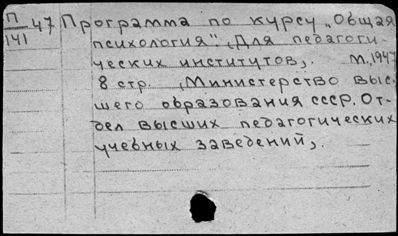 П 47 Программа по курсу „Общая
141 психология". (Для педагоги-
ческих институтов). М., 1947
8 стр. (Министерство выс-
шего образования СССР. От-
дел высших педагогических
учебных заведений).